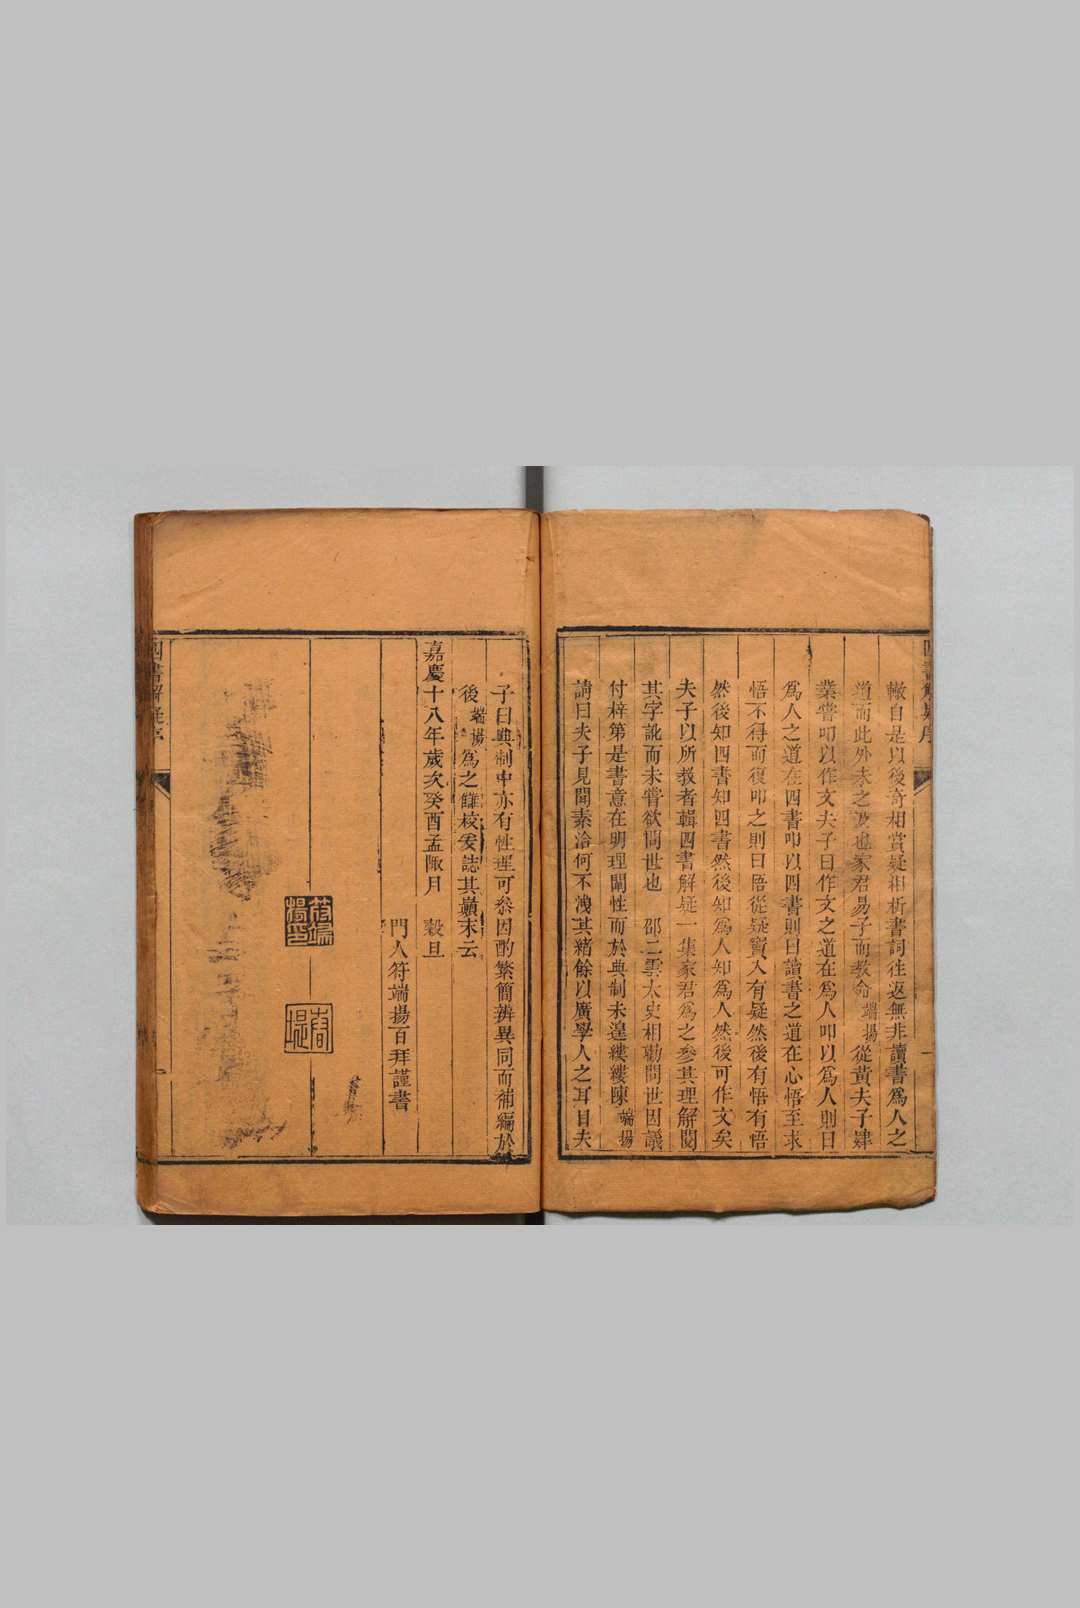 轍自是以後奇相賞疑相析書詞往返無非讀書為人之
道而此外未之及也家君易子而教命端揚從黃夫子肄
業嘗叩以作文夫子曰作文之道在為人叩以為人則曰
為人之道在四書叩以四書則曰讀書之道在心悟至求
悟不得而復叩之則曰悟從疑竇入有疑然後有悟有悟
然後知四書知四書然後知為人知為人然後可作文矣
夫子以所教者輯四書解疑一集家君為之參其理解閱
其字訛而未嘗欲問世也 邵二雲太史相勸問世因議
付梓第是書意在明理闡性而於典制未遑縷縷陳端揚
請曰夫子見聞素洽何不洩其緒餘以廣學人之耳目夫
四書解疑序
一
子曰典制中亦有性理可叅因酌繁簡辨異同而補編於
後端揚為之讎校爰誌其巔末云
嘉慶十八年歲次癸酉孟陬月 穀旦
門人符端揚百拜謹書
符端揚印
春堤
四書解疑序
二